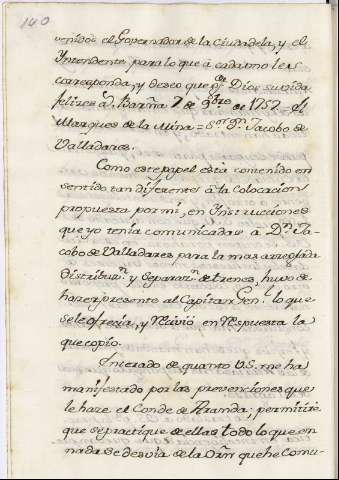 140
venidos el Governador de la Ciudadela, y el
Yntendente para lo que â cada uno les
corresponda, y deseo que gde Dios su vida
felizes as. Barzna 7 de Xbre de 1757 = el
Marques de la Mina = Sor Dn. Jacobo de
Valladares.
Como este papel está contenido en
sentido tan diferente â la colocacion
propuesta por mi, en Ynstrucciones
que yo tenia comunicadas a Dn. Ja-
cobo de Valladares para la mas arreglada
distribun. y separazn. de trenes, huve de
hazer presente al Capitan Genl. lo que
se le ofrecia, y volvió en respuesta la
que copio.
Ynterado de quanto V.S. me ha
manifestado por las prevenciones que
le haze el Conde de Aranda; permitiré
que se practique de ellas todo lo que en
nada se desvia de la Orn que he Comu-